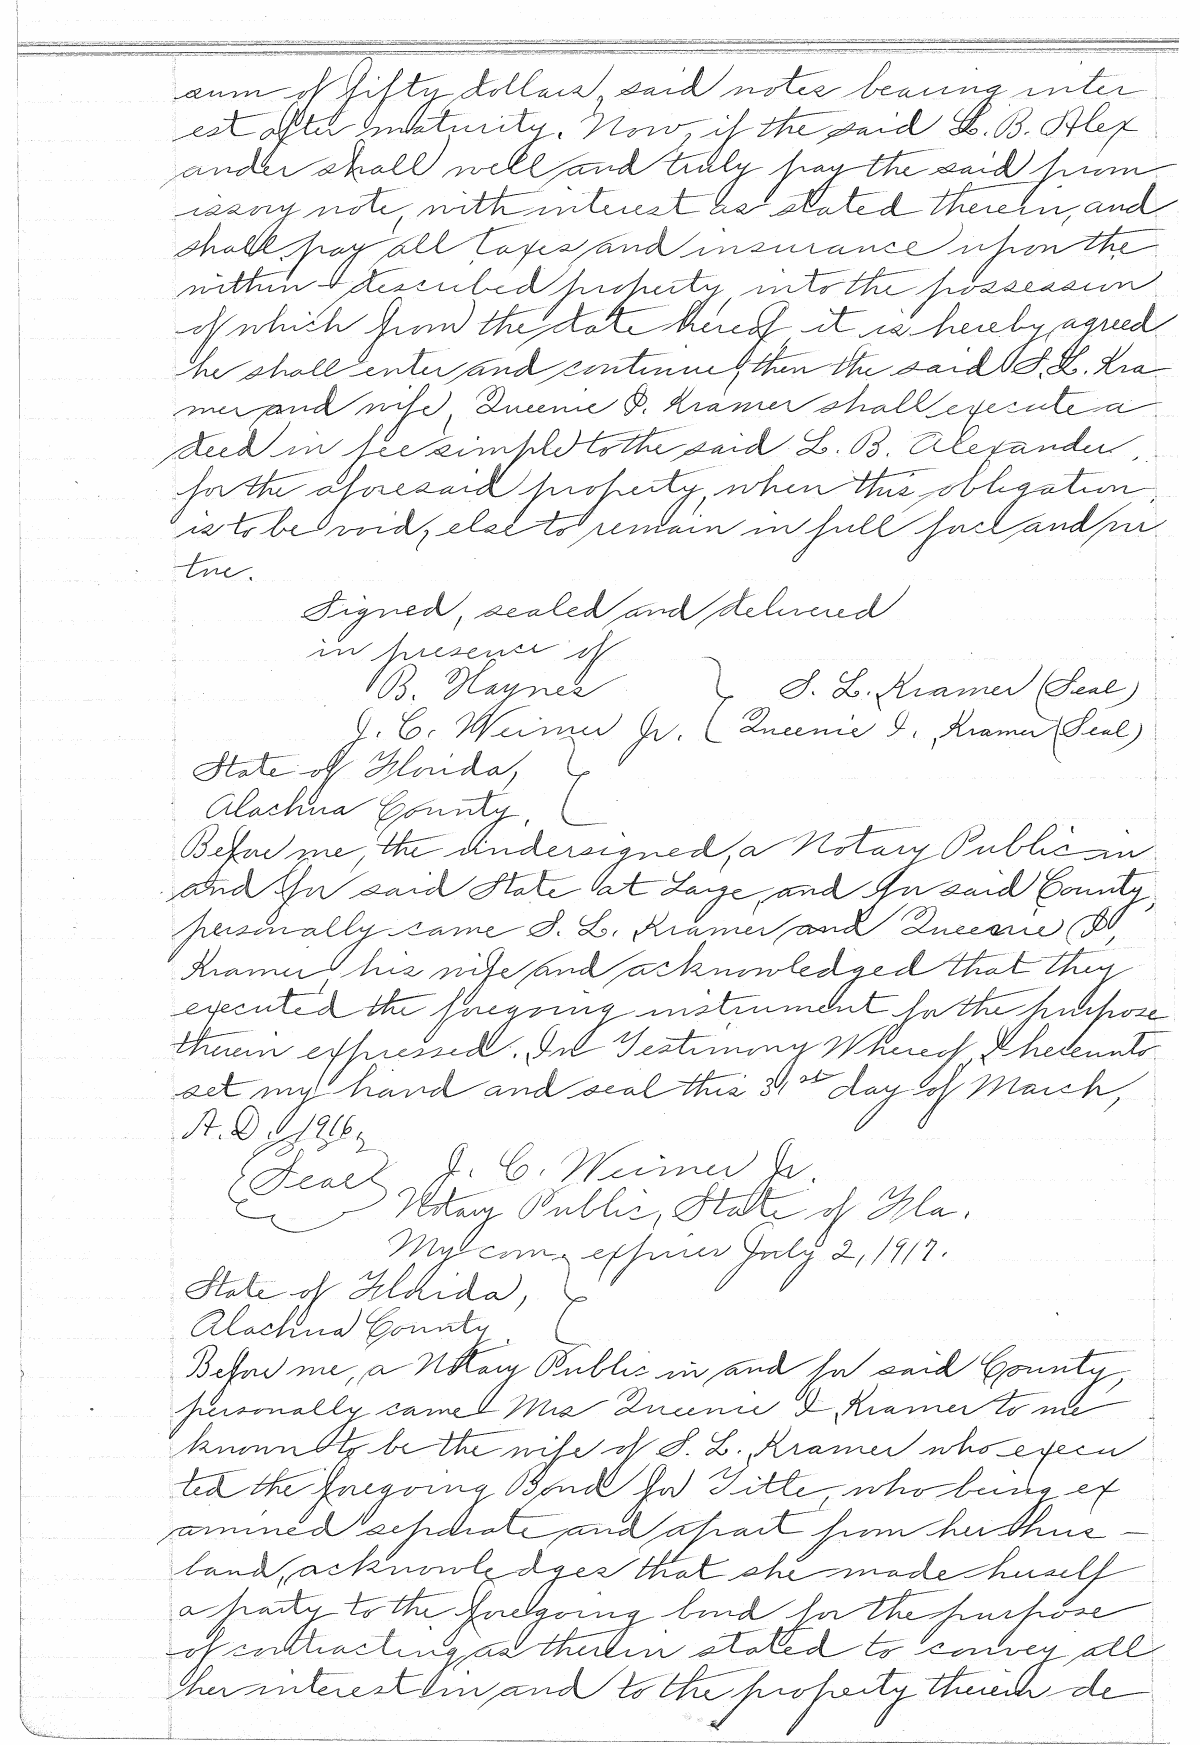 sum of fifty dollars, said notes bearing inter
est after maturity. Now, if the said L. B. Alex
ander shall well and truly pay the said prom
issory note, with interest as stated therein, and
shall pay all taxes and insurance upon the
within described property, into the possession
of which from the date hereof it is hereby agreed
he shall enter and continue, then the said S. L. Kra
mer and wife, Queenie I. Kramer shall execute a
deed in fee simple to the said L. B. Alexander,
for the aforesaid property, when this obligation
is to be void, else to remain in full force and vir
tue.
Signed, sealed and delivered
in presence of
B. Haynes } S. L. Kramer (Seal)
J. C. Weimer Jr. Queenie I. Kramer (Seal)
State of Florida, }
Alachua County.
Before me, the undersigned, a Notary Public in
and for said State at Large, and for said County,
personally came S. L. Kramer and Queenie I.
Kramer, his wife and acknowledged that they
executed the foregoing instrument for the purpose
therein expressed. In Testimony Whereof, I hereunto
set my hand and seal this 31st day of March,
A. D. 1916.
(Seal) J. C. Weimer Jr.
Notary Public, State of Fla.
My com. expires July 2, 1917.
State of Florida, }
Alachua County.
Before me, a Notary Public in and for said County,
personally came Mrs Queenie I. Kramer to me
known to be the wife of S. L. Kramer who execu
ted the foregoing Bond for Title, who being ex
amined separate and apart from her hus-
band, acknowledges that she made herself
a party to the foregoing bond for the purpose
of contracting as therein stated to convey all
her interest in and to the property therein de